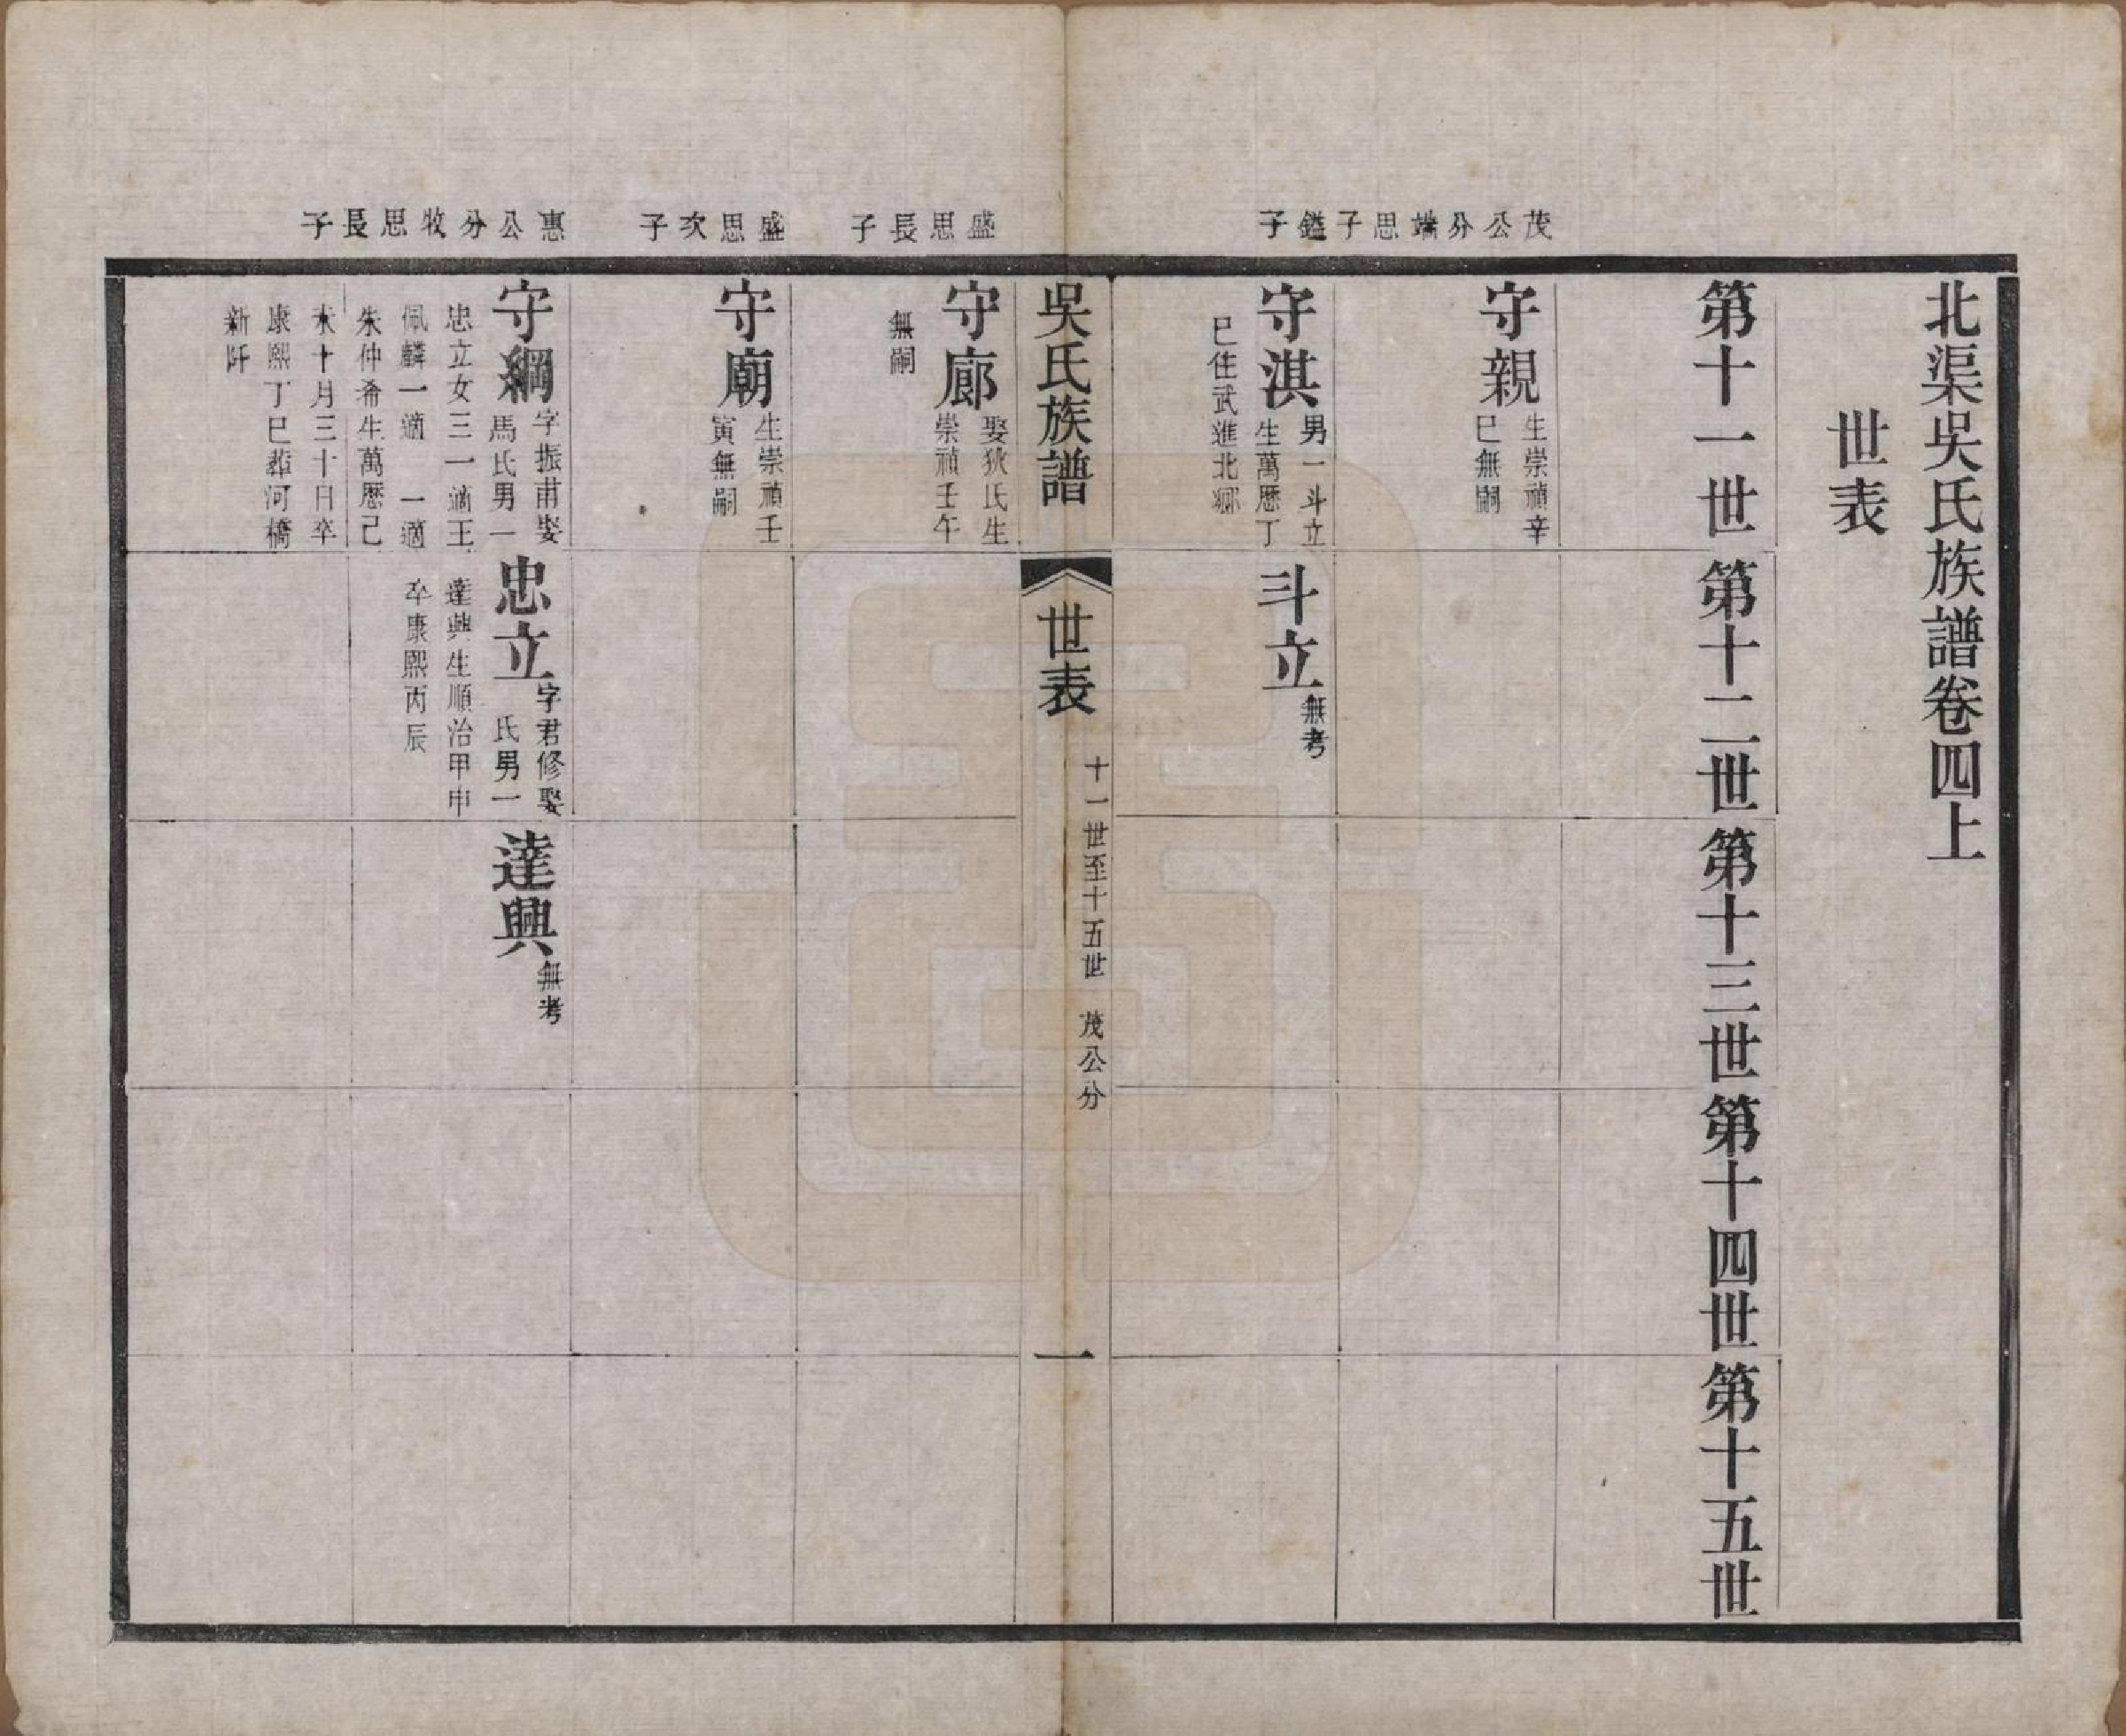 北渠吳氏族譜卷四上
世表
第十一世
第十二世
第十三世
第十四世
第十五世
茂公分端思子
守親
生崇禎辛
巳無嗣
鎰子
守淇
男一斗立
生萬歷丁
巳住武進北鄉
斗立
無考
吳氏族譜
世表
十一世至十五世 茂公分
一
盛思長子
守廊
娶狄氏生
崇禎壬午
無嗣
盛思次子
守廟
生崇禎壬
寅無嗣
惠公分牧思長子
守綱
字振甫娶
馬氏男一
忠立女三一適王
佩麟一適 一適
朱仲希生萬歷己
未十月三十日卒
康熙丁巳葬河橋
新阡
忠立
字君修娶
氏男一
達興生順治甲申
卒康熙丙辰
達興
無考